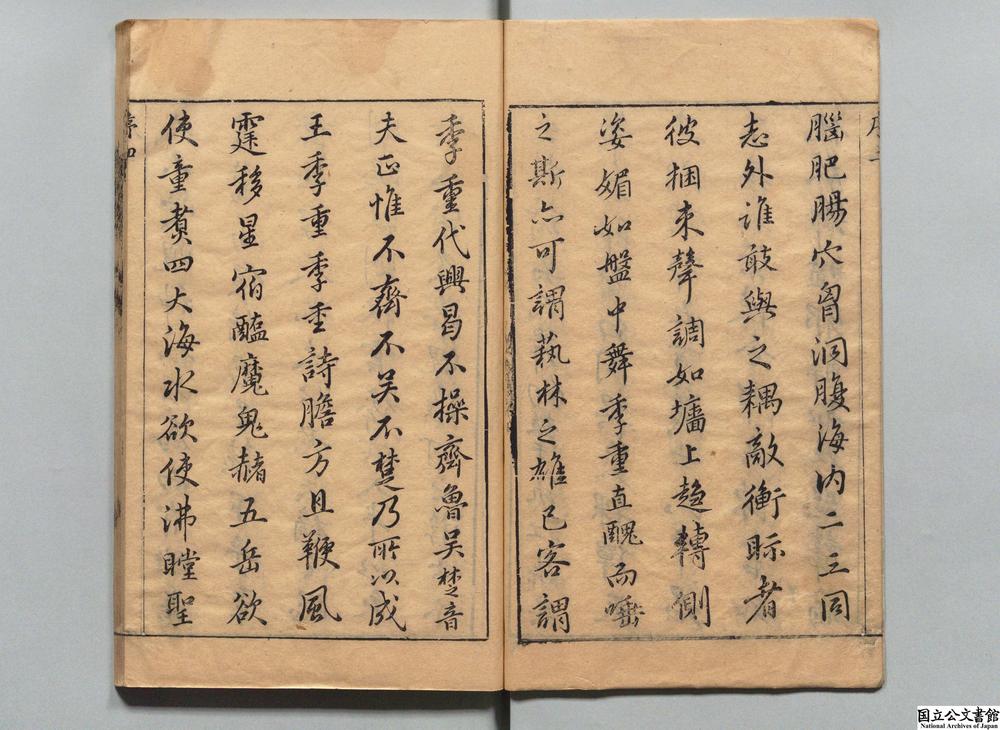 腦肥腸穴胷洞腹海内二三同
志外誰敢與之耦敵衡眎者
彼捆束聲調如墻上趨轉側
姿媚如盤中舞季重直醜而唾
之斯亦可謂藝林之雄已客謂
季重代興曷不操齊魯吳楚音
夫正惟不齊不吳不楚乃所以成
王季重季重詩膽方且鞭風
霆移星宿醢魔鬼赭五岳欲
使童煑四大海水欲使沸瞠聖
序四
国立公文書館
National Archives of Japan